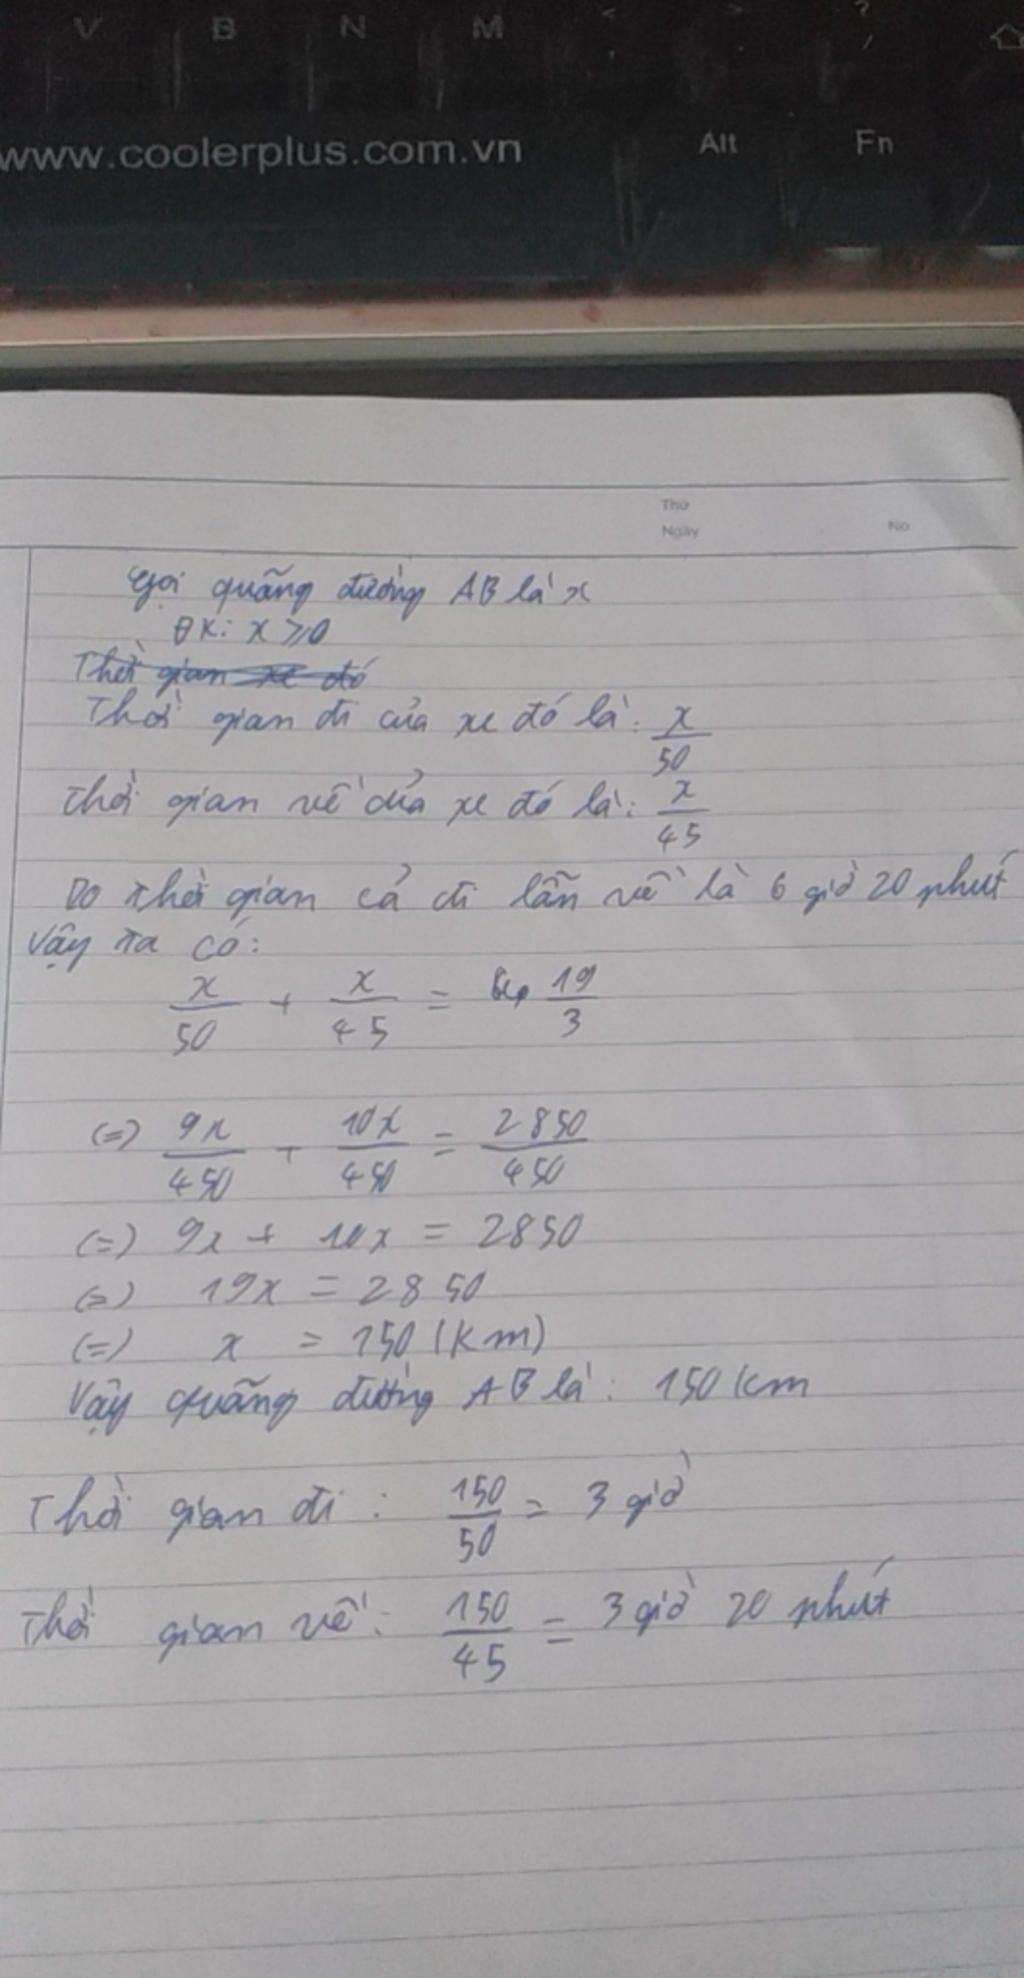 V B N M < > ?
, . /
www.coolerplus.com.vn Alt Fn
Thứ
Ngày No
Gọi quãng đường AB là x
ĐK: x ⩾ 0
Thời gian xe đó
Thời gian đi của xe đó là: x/50
Thời gian về của xe đó là: x/45
Do thời gian cả đi lẫn về là 6 giờ 20 phút
Vậy ta có:
x/50 + x/45 = 19/3
(=) 9x/450 + 10x/450 = 2850/450
(=) 9x + 10x = 2850
(=) 19x = 2850
(=) x = 150 (km)
Vậy quãng đường AB là: 150 km
Thời gian đi: 150/50 = 3 giờ
Thời gian về: 150/45 = 3 giờ 20 phút